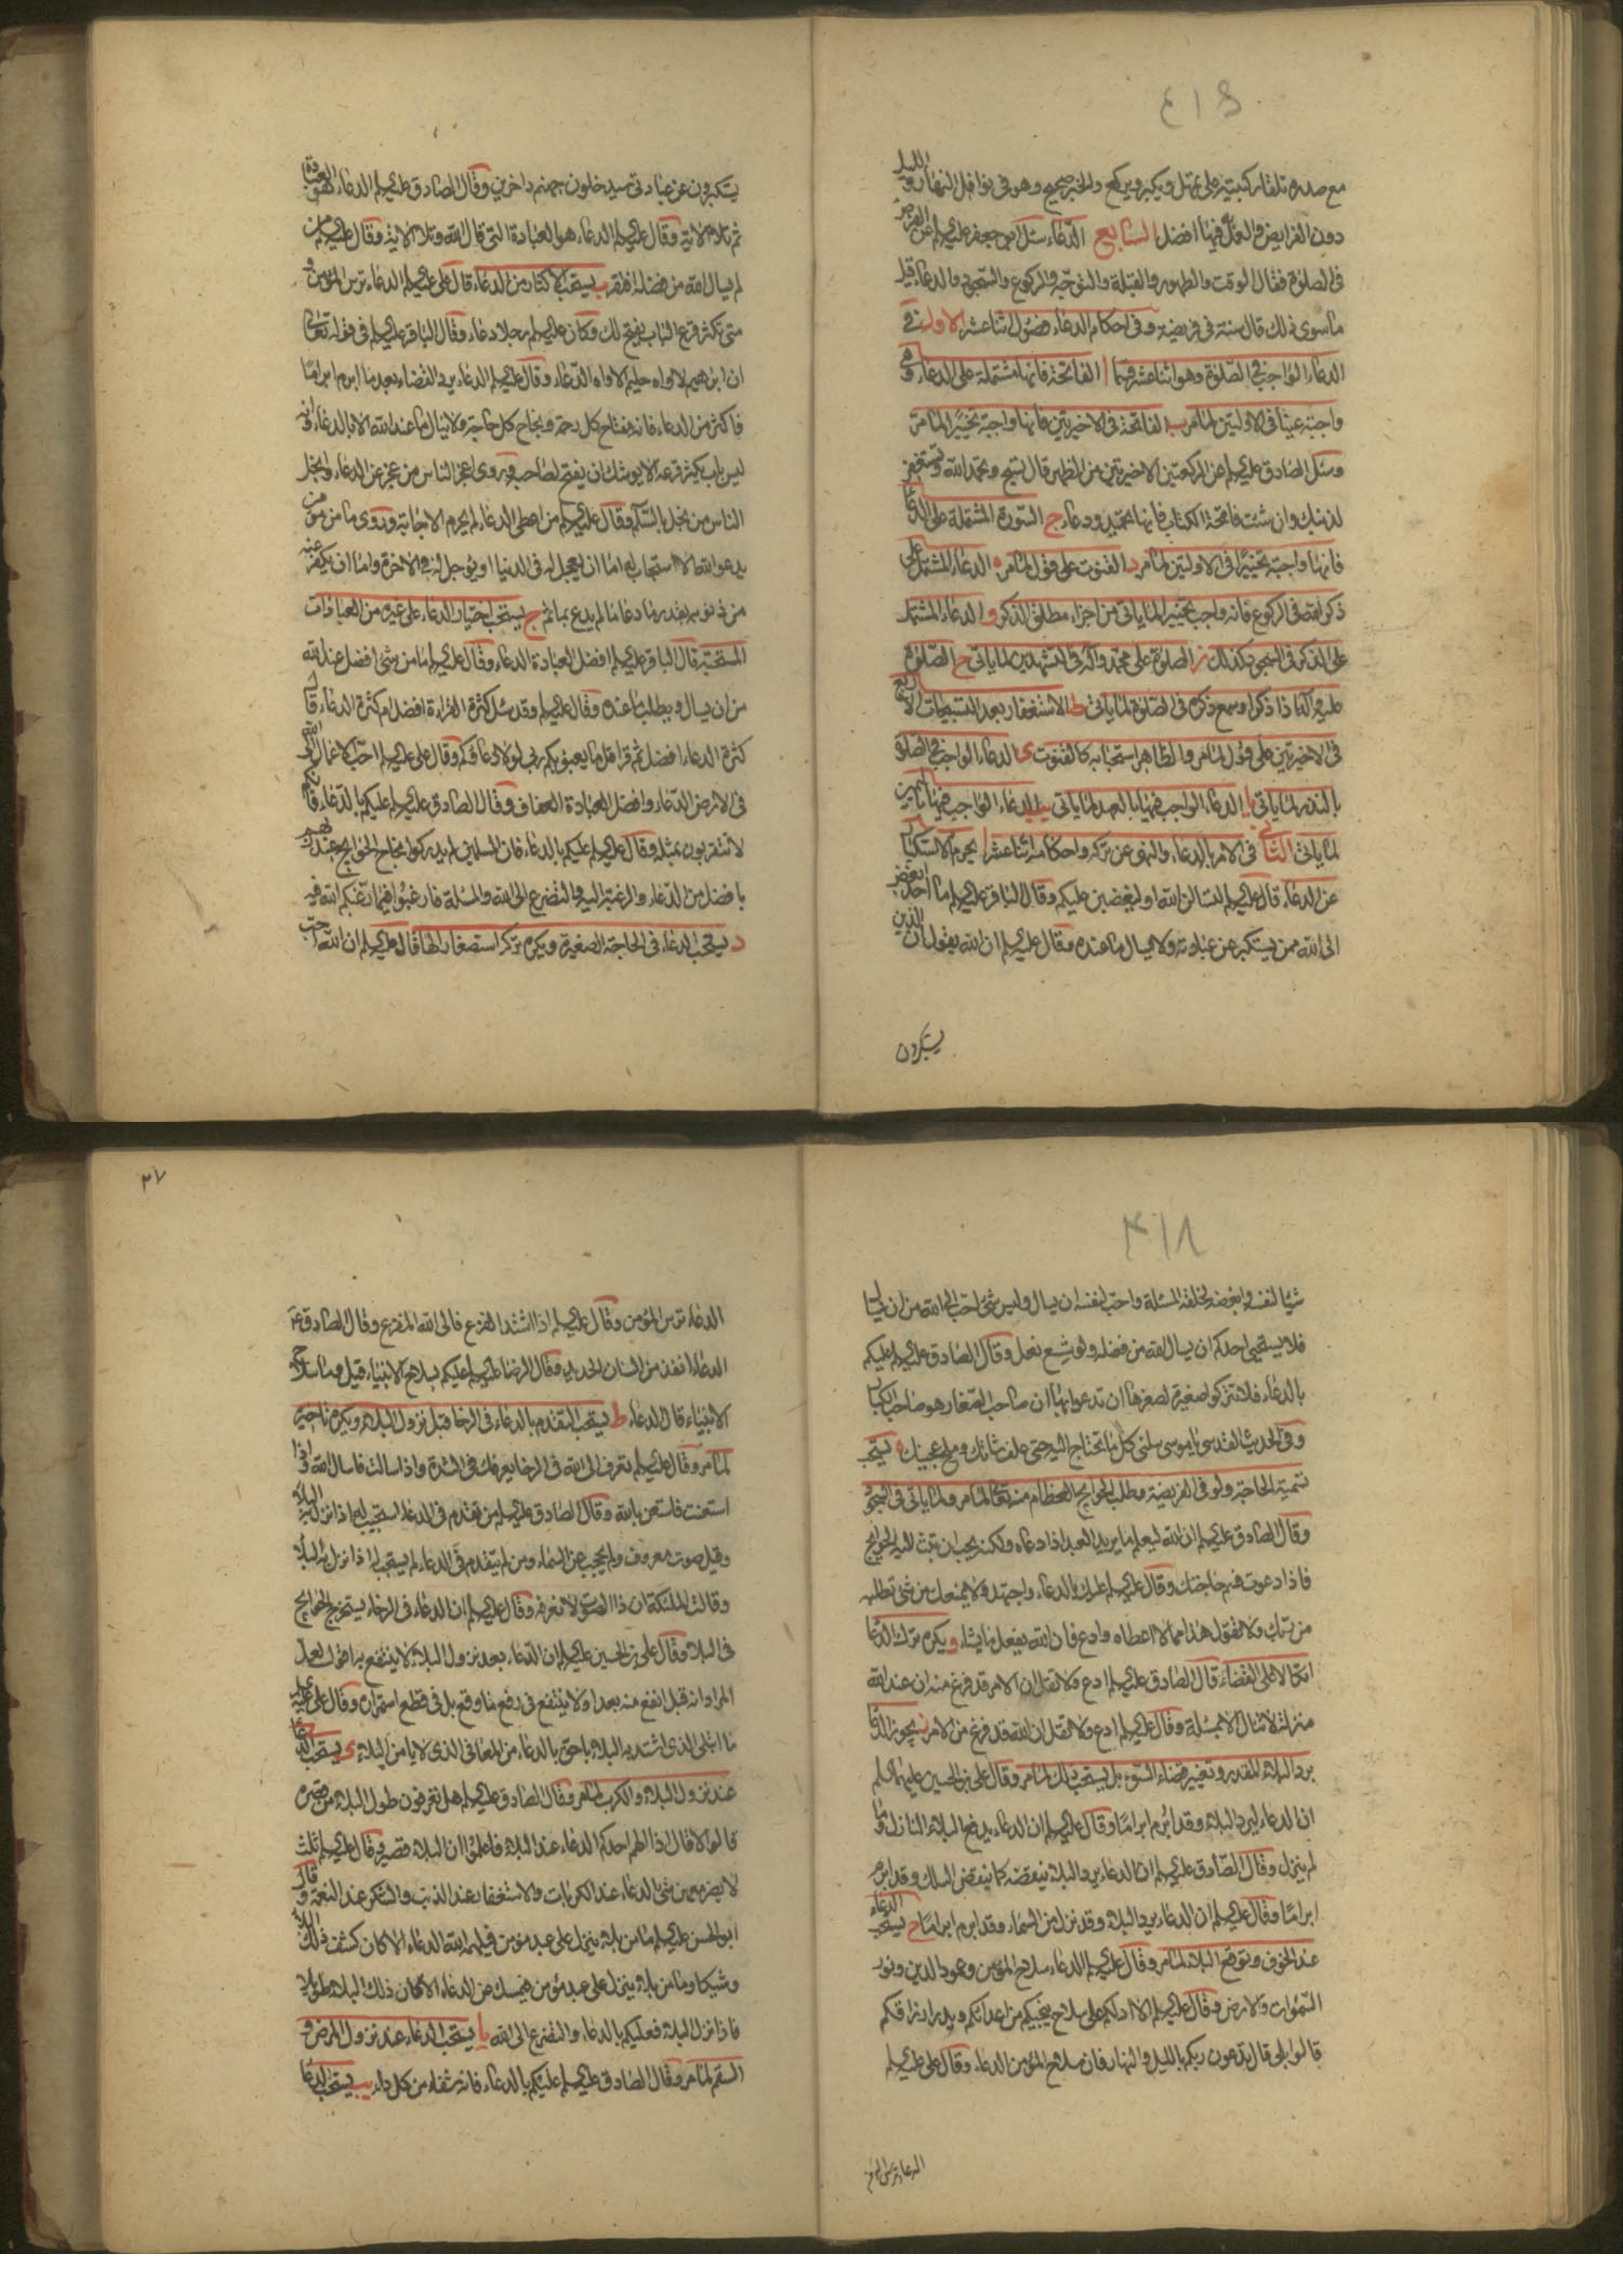 ٤١٤
مع صدره تلقاء ركبتيه على تمهل ويكبر ويركع والخبر صحيح وهو في نوافل النهار والليل
دون الفرايض والعمل فيها افضل السابع الدعاء سئل ابي جعفر عليه السلم عن الفرض
في الصلوة فقال الوقت والطهور والقبلة والتوجه والركوع والسجود والدعاء قيل
ما سوى ذلك قال سنة في فريضة وفي احكام الدعاء فصول اثنا عشر الاول في
الدعاء الواجب في الصلوة وهو اثنا عشر قسما ا الفاتحة فانها مشتملة على الدعاء وهي
واجبة عينا في الاولتين لما مر ب الفاتحة في الاخيرتين فانها واجبة تخييرا لما مر
وسئل الصادق عليه السلم عن الركعتين الاخيرتين من الظهر قال تسبح وتحمد الله وتستغفر
لذنبك وان شئت فاتحة الكتاب فانها تحميد ودعاء ج السورة المشتملة على الدعا
فانها واجبة تخييرا في الاولتين لما مر د القنوت على قول لما مر ه الدعاء المشتمل على
ذكر الله في الركوع فانه واجب تخييرا لما ياتي من اجزاء مطلق الذكر و الدعاء المشتمل
على الذكر في السجود كذلك ز الصلوة على محمد وآله في التشهدين لما ياتي ح الصلوة
عليه كلما ذا ذكر او سمع ذكره في الصلوة لما ياتي ط الاستغفار بعد التسبيحات الاربع
في الاخيرتين على قول لما مر والظاهر استحبابه كالقنوت ى الدعاء الواجب في الصلوة
بالنذر لما ياتي يا الدعاء الواجب فيها بالعهد لما ياتي يب الدعاء الواجب فيها باليمين
لما ياتي الثاني في الامر بالدعاء والنهي عن تركه واحكامه اثنا عشر ا يحرم الاستكبار
عن الدعاء قال عليه السلم لتسالن الله او ليغضبن عليكم وقال الباقر عليه السلم ما احد ابغض
الى الله ممن يستكبر عن عبادته ولا يسال ما عنده وقال عليه السلم ان الله يقول ان الذين
يستكبرون
يستكبرون عن عبادتي سيدخلون جهنم داخرين وقال الصادق عليه السلم الدعاء هو العبادة
ثم تلا الاية وقال عليه السلم الدعاء هو العبادة التي قال الله وتلا الاية وقال عليه السلم من
لم يسال الله من فضله افتقر ب يستحب الاكثار من الدعاء قال على عليه السلم الدعاء ترس المؤمن و
متى تكثر قرع الباب يفتح لك وكان عليه السلم رجلا دعاء وقال الباقر عليه السلم في قوله تعالى
ان ابرهيم لاواه حليم الاواه الدعاء وقال عليه السلم الدعاء يرد القضاء بعد ما ابرم ابراما
فاكثر من الدعاء فانه مفتاح كل رحمة ونجاح كل حاجة ولا ينال ما عند الله الا بالدعاء وانه
ليس باب يكثر قرعه الا يوشك ان يفتح لصاحبه وروى اعجز الناس من عجز عن الدعاء وابخل
الناس من بخل بالسلام وقال عليه السلم من اعطي الدعاء لم يحرم الاجابة وروى ما من مؤمن
يدعو الله الا استجاب له اما ان يعجل له في الدنيا او يؤجل له في الاخرة واما ان يكفر عنه
من ذنوبه بقدر ما دعا ما لم يدع بماثم ج يستحب اختيار الدعاء على غيره من العبادات
المستحبة قال الباقر عليه السلم افضل العبادة الدعاء وقال عليه السلم ما من شئ افضل عند الله
من ان يسال ويطلب ما عنده وقال عليه السلم وقد سئل كثرة القراءة افضل ام كثرة الدعاء قال
كثرة الدعاء افضل ثم قرأ قل ما يعبؤ بكم ربي لولا دعاؤكم وقال على عليه السلم احب الاعمال الى الله
في الارض الدعاء وافضل العبادة العفاف وقال الصادق عليه السلم عليكم بالدعاء فانكم
لا تتقربون بمثله وقال عليه السلم عليكم بالدعاء فان المسلمين لم يدركوا نجاح الحوايج عند ربهم
بافضل من الدعاء والرغبة اليه والتضرع الى الله والمسئلة فارغبوا فيما رغبكم الله فيه
د يستحب الدعاء في الحاجة الصغيرة ويكره تركه استصغارا لها قال عليه السلم ان الله احب
٤١٨
شيئا لنفسه وابغضه لخلقه المسئلة واحب لنفسه ان يسال وليس شئ احب الى الله من ان يسال
فلا يستحيي احدكم ان يسال الله من فضله ولو شسع نعل وقال الصادق عليه السلم عليكم
بالدعاء فلا تتركوا صغيرة لصغرها ان تدعوا بها ان صاحب الصغار هو صاحب الكبار
وفي الحديث القدسي يا موسى سلني كل ما تحتاج اليه حتى علف شاتك وملح عجينك ه يستحب
تسمية الحاجة ولو في الفريضة وطلب الحوايج العظام منه تعالى لما مر ولما ياتي في السجود
وقال الصادق عليه السلم ان الله ليعلم ما يريد العبد اذا دعاه ولكنه يحب ان تبث اليه الحوايج
فاذا دعوت فسم حاجتك وقال عليه السلم عليك بالدعاء واجتهد ولا يمنعك من شئ تطلبه
من ربك ولا تقول هذا مما لا اعطاه وادع فان الله يفعل ما يشاء و يكره ترك الدعا
اتكالا على القضاء قال الصادق عليه السلم ادع ولا تقل ان الامر قد فرغ منه ان عند الله
منزلة لا تنال الا بمسئلة وقال عليه السلم ادع ولا تقل ان الله قد فرغ من الامر ز يجوز الدعا
برد البلاء المقدر وتغيير قضاء السوء بل يستحب ذلك لما مر وقال على بن الحسين عليهما السلم
ان الدعاء ليرد البلاء وقد ابرم ابراما وقال عليه السلم ان الدعاء يدفع البلاء النازل وما
لم ينزل وقال الصادق عليه السلم ان الدعاء يرد البلاء ينقضه كما ينقض السلك وقد ابرم
ابراما وقال عليه السلم ان الدعاء يرد البلاء وقد نزل من السماء وقد ابرم ابراما ح يستحب الدعاء
عند الخوف وتوقع البلاء لما مر وقال عليه السلم الدعاء سلاح المؤمن وعمود الدين ونور
السموات والارض وقال عليه السلم الا ادلكم على سلاح ينجيكم من اعدائكم ويدر ارزاقكم
قالوا بلى قال تدعون ربكم بالليل والنهار فان سلاح المؤمن الدعاء وقال على عليه السلم
الدعاء ترس المؤمن
٣٧
الدعاء ترس المؤمن وقال عليه السلم اذا اشتد الفزع فالى الله المفزع وقال الصادق ع
الدعاء انفذ من السنان الحديد وقال الرضا عليه السلم عليكم بسلاح الانبياء قيل وما سلاح
الانبياء قال الدعاء ط يستحب التقدم بالدعاء في الرخا قبل نزول البلاء ويكره تاخيره
لما مر وقال عليه السلم تعرف الى الله في الرخا يعرفك في الشدة واذا سالت فاسال الله واذا
استعنت فاستعن بالله وقال الصادق عليه السلم من تقدم في الدعاء استجيب له اذا نزل به البلاء
وقيل صوت معروف ولم يحجب عن السماء ومن لم يتقدم في الدعاء لم يستجب له اذا نزل به البلاء
وقالت الملئكة ان ذا الصوت لا نعرفه وقال عليه السلم ان الدعاء في الرخاء يستخرج الحوايج
في البلاء وقال على بن الحسين عليه السلم ان الدعاء بعد نزول البلاء لا ينتفع به اقول لعل
المراد انه قبل انفع منه بعد او لا ينتفع في دفع ما وقع بل في قطع استمراره وقال على عليه
ما ابتلي الذي اشتد به البلاء باحق بالدعاء من المعافى الذي لا يامن البلاء ى يستحب الدعا
عند نزول البلاء والكرب لما مر وقال الصادق عليه السلم هل تعرفون طول البلاء من قصره
قالوا لا قال اذا الهم احدكم الدعاء عند البلاء فاعلموا ان البلاء قصير وقال عليه السلم ثلث
لا يضر معهن شئ الدعاء عند الكربات والاستغفار عند الذنب والشكر عند النعمة وقال
ابو الحسن عليه السلم ما من بلاء ينزل على عبد مؤمن فيلهمه الله الدعاء الا كان كشف ذلك البلاء
وشيكا وما من بلاء ينزل على عبد مؤمن فيمسك عن الدعاء الا كان ذلك البلاء طويلا
فاذا نزل البلاء فعليكم بالدعاء والتضرع الى الله يا يستحب الدعاء عند نزول المرض و
السقم لما مر وقال الصادق عليه السلم عليكم بالدعاء فانه شفاء من كل داء يب يستحب الدعا